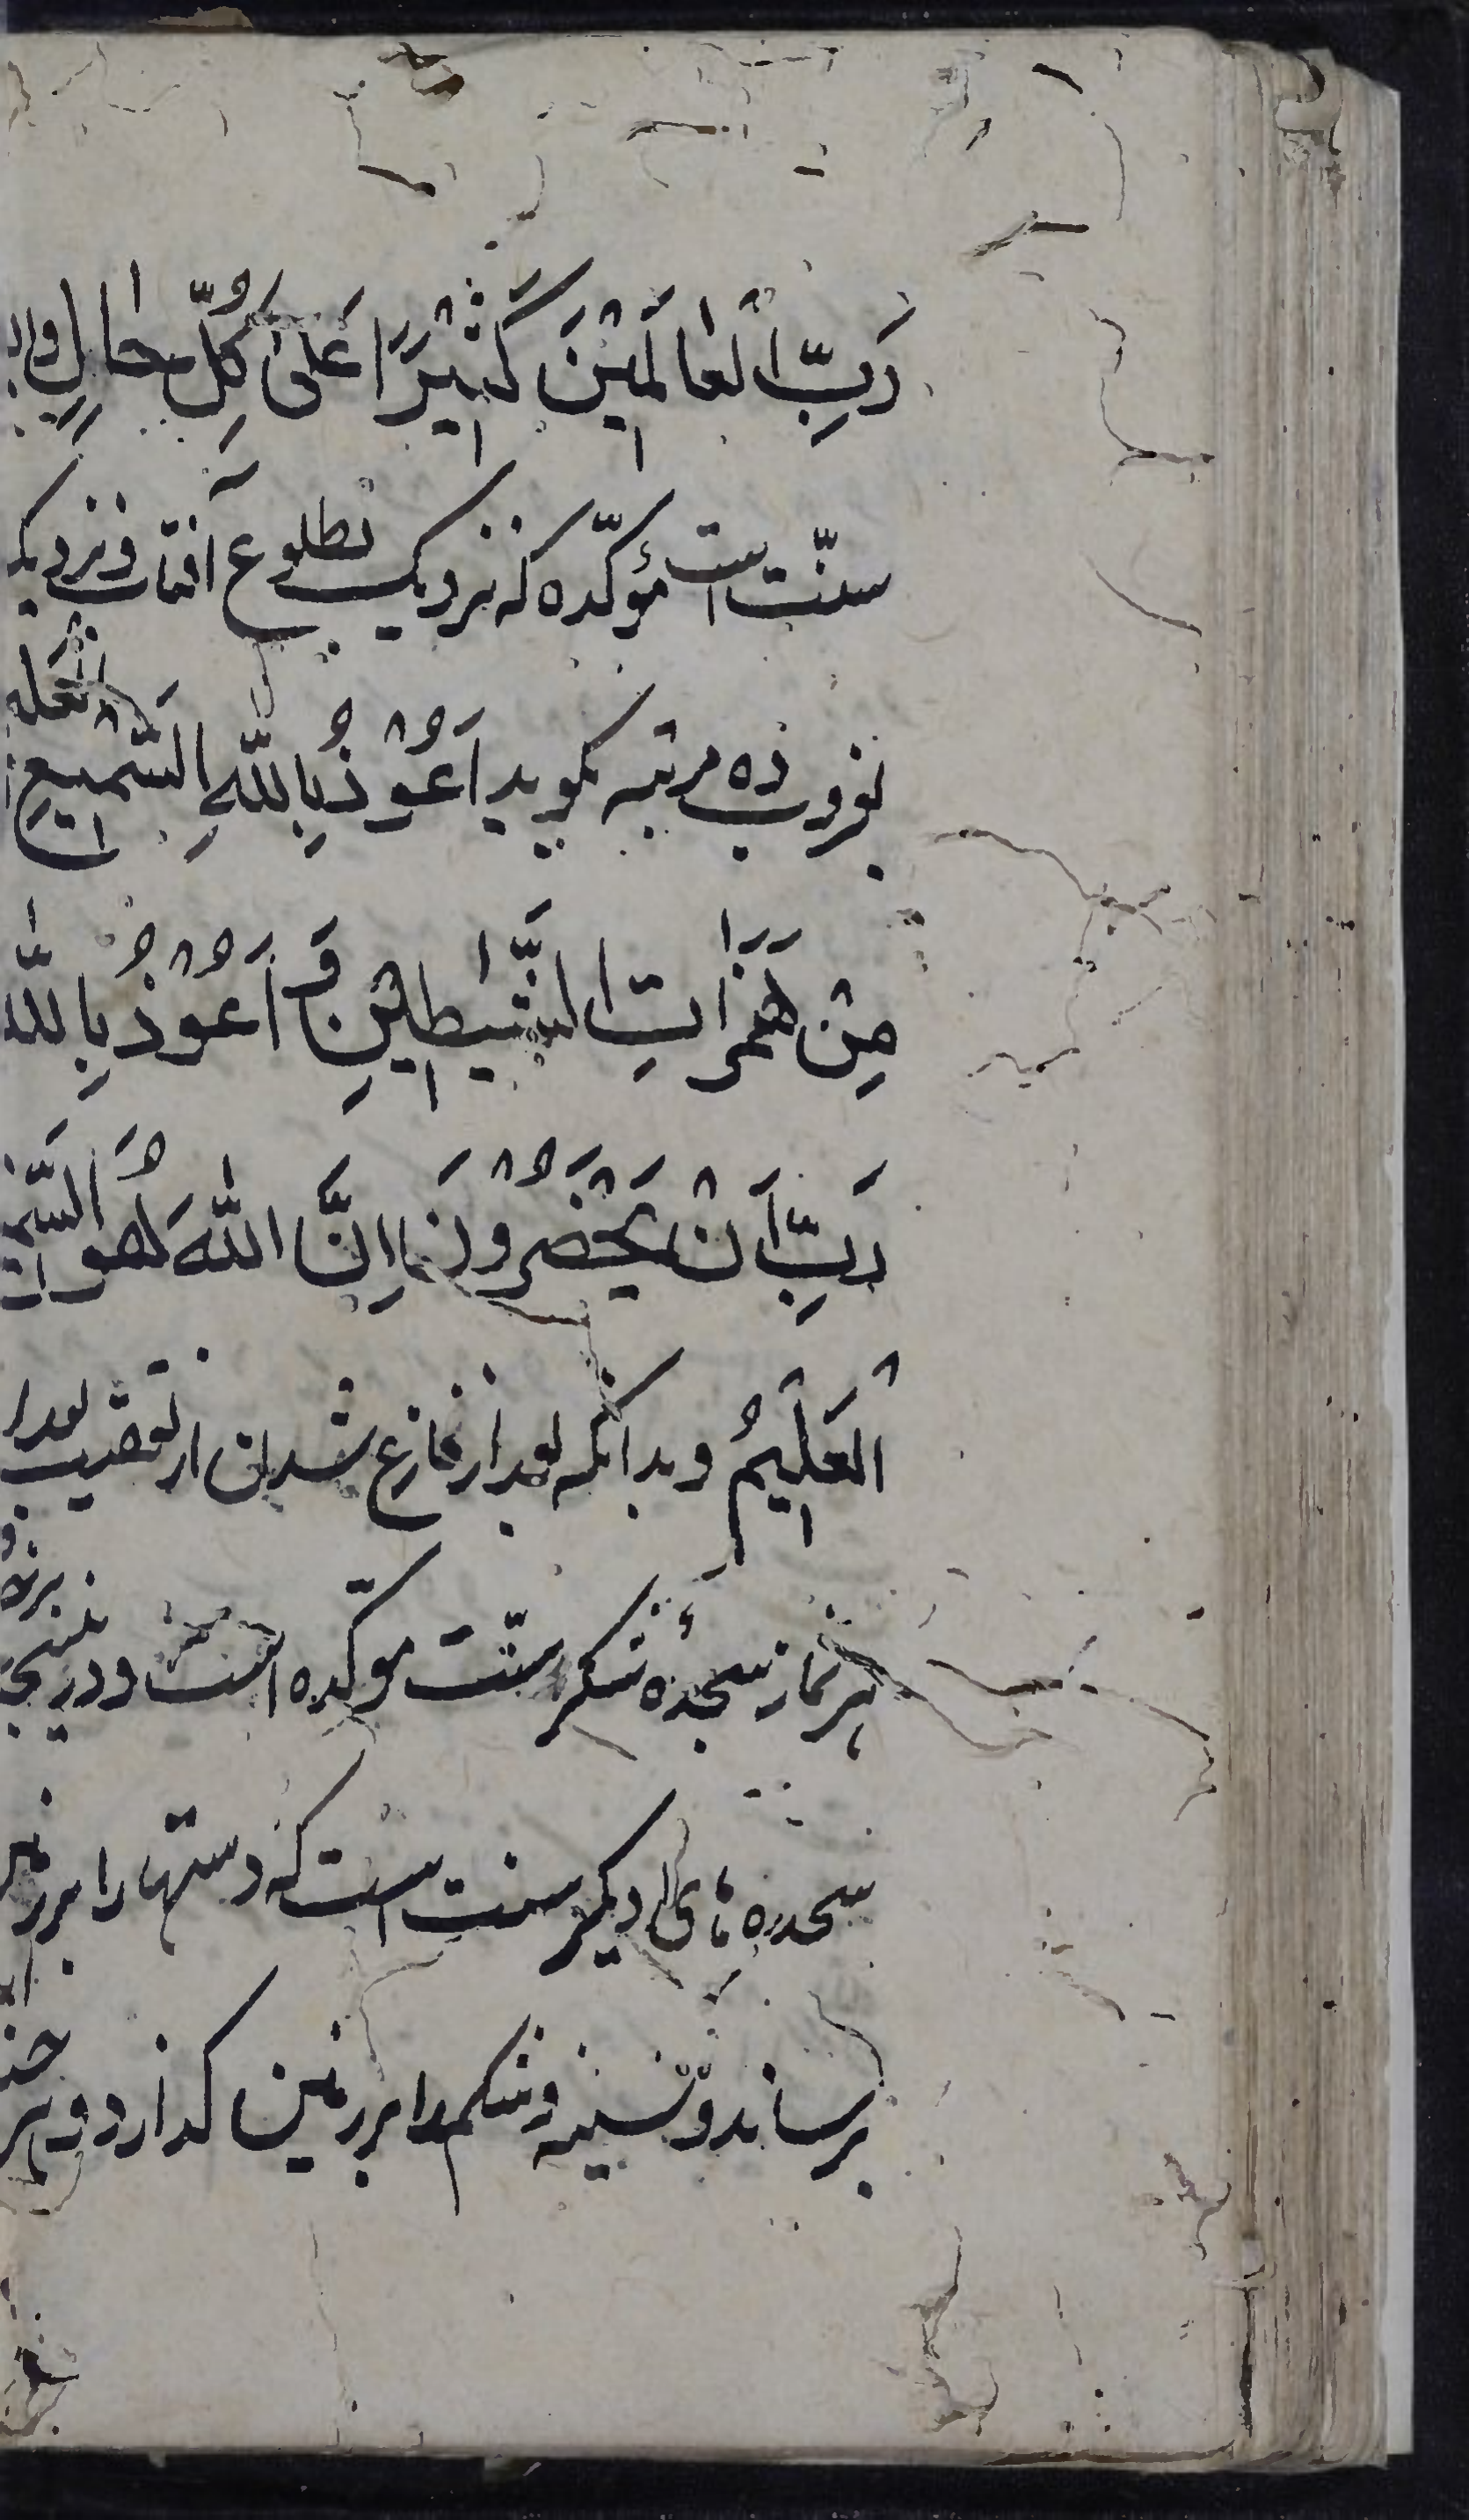 رَبِّ الْعٰالَمِیْنَ كَثِیْرًا عَلٰی كُلِّ حٰالٍ و
سنّت است مؤكّده كه نزدیک بطلوع آفتاب و نزدیک
بغروب ده مرتبه بگوید اَعُوْذُ بِاللّٰهِ السَّمِیْعِ الْعَلِ
مِنْ هَمَزٰاتِ الشَّیٰاطِیْنِ وَ اَعُوْذُ بِاللّٰه
رَبِّ اَنْ یَحْضُرُوْنَ اِنَّ اللّٰهَ هُوَ السَّمِ
الْعَلِیْمُ و بدانكه بعد از فارغ شدن از تعقیب بعد ا
هر نماز سجدهٔ شكر سنّت مؤكّده است و در
سجده های دیگر سنت است كه دستها را بر زمین
برساند و سینه و شكم را بر زمین گذارد و بر